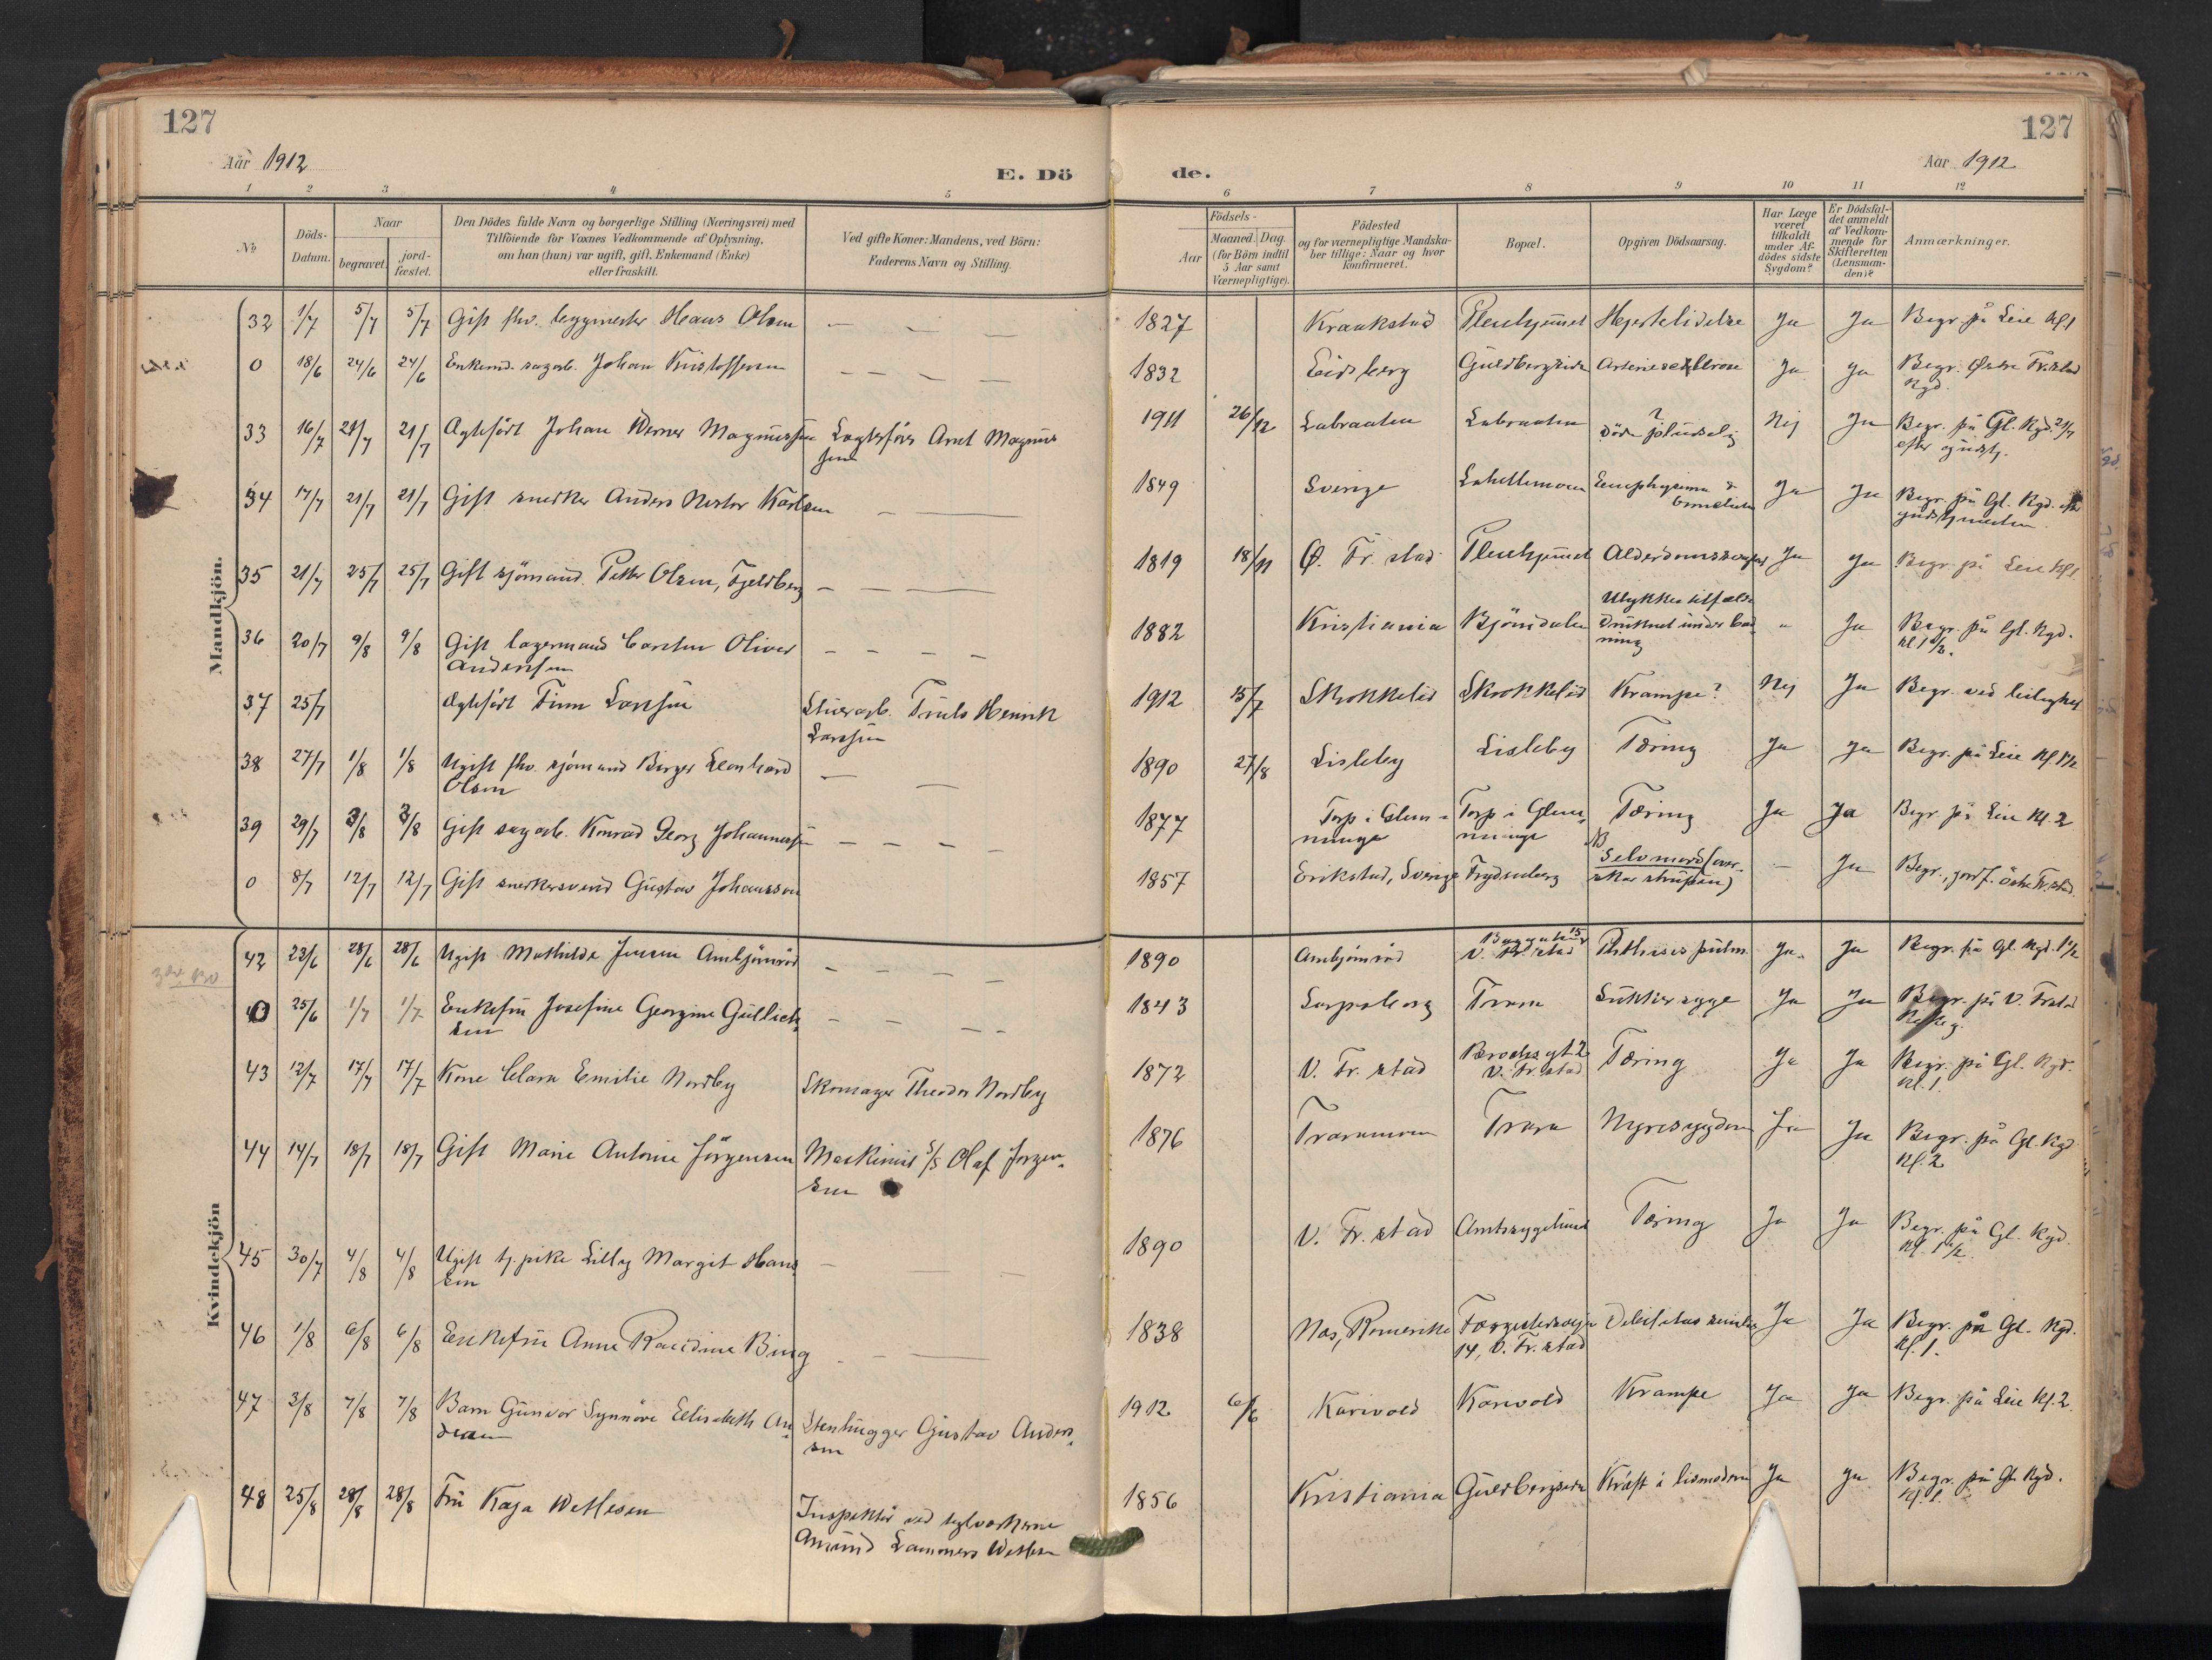 127
127
Aar 1912
E. Dö
de.
Aar 1912
1 2 3 4 5 6 7 8 9 10 11 12
No
Döds-
Datum.
Naar
begravet.
jord-
fæstet.
Den Dödes fulde Navn og borgerlige Stilling (Næringsvei) med
Tilföiende for Voxnes Vedkommende af Oplysning,
om han (hun) var ugift, gift, Enkemand (Enke)
eller fraskilt.
Ved gifte Koner: Mandens, ved Börn:
Faderens Navn og Stilling.
Födsels-
Aar
Maaned. Dag.
(for Börn indtil
5 Aar samt
Værnepligtige).
Födested
og for værnepligtige Mandska-
ber tillige: Naar og hvor
konfirmeret.
Bopæl.
Opgiven Dödsaarsag.
Har Læge
været
tilkaldt
under Af-
dödes sidste
Sygdom?
Er Dödsfal-
det anmeldt
af Vedkom-
mende for
Skifteretten
(Lensman-
den)?
Anmærkninger.
Mandkjön.
32 1/7 5/7 5/7 Gift fhv. byggmester Hans Olsen — — — 1827 Kraakstad Pleiehjemmet Hjertelidelse Ja Ja Begr på Leie Kl. 1
0 18/6 24/6 24/6 Enkemd. sagarb. Johan Kristoffersen — — — — 1832 Eidsberg Guldbergsiden Arteriesclerose Ja Ja Begr. Östre Fr.stad
Kgd.
33 16/7 21/7 21/7 Ægtefödt Johan Werner Magnussen Arnt Magnus
sen 1911 26/12 Labraaten Labraaten ?
Döde pludselig Nej Ja Begr. på Gl. Kgd. 21/7
efter gudstj.
34 17/7 21/7 21/7 Gift snedker Anders Nestor Karlsen — — 1849 Sverige Lahellemoen Emphysema & Ja Ja Begr. på Gl. Kgd. efter
gudstjenesten.
35 21/7 25/7 25/7 Gift sjömand Petter Olsen, Fjeldberg — — — — 1819 18/11 Ö. Fr. stad Pleiehjemmet Ja Ja Begr på Leie Kl 1
36 20/7 9/8 9/8 Gift lagermand Carsten Oliver
Andersen — — — — 1882 Kristiania Björndalen Ulykkestilfælde
Druknet under bad
ning " Ja Begr. på Gl. Kgd.
Kl. 1 1/2.
37 25/7 Ægtefödt Finn Larssen Truls Henrik
Larssen 1912 15/7 Skrokkelid Skrokkelid Krampe? Nej Ja Begr. ved leilighet
38 27/7 1/8 1/8 Ugift fhv. sjömand Birger Leonhard
Olsen — — 1890 27/8 Lisleby Lisleby Tæring Ja Ja Begr. på Leie Kl. 1 1/2
39 29/7 3/8 3/8 Gift sagarb. Konrad Georg Johannessen — — — — 1877 Torp i Glem-
minge Torp i Glem-
minge Tæring Ja Ja Begr på Leie Kl. 2
0 8/7 12/7 12/7 Gift snekkersvend Gustav Johansson 1857 Erikstad, Sverige Frydenberg NB
Selvmord (over-
skar strupen) — Ja Begr., jordf. Östre Fr.stad.
Kvindekjön
42 23/6 28/6 28/6 Ugift Mathilde Jensen Ambjörnröd — — — — 1890 Ambjörnröd V. Fr. stad Phthisis pulm. Ja. Ja Begr. på Gl. Kgd. 1 1/2
0 25/6 1/7 1/7 Enkefru Josefine Georgine Gullich
sen — — — — 1843 Sarpsborg Trara Sukkersyge Ja Ja Begr. på V. Fr.stad
43 12/7 17/7 17/7 Kone Clara Emilie Nordby Skomager Theodor Nordby 1872 V. Fr. stad Brochsgt 2
V. Fr. stad Tæring Ja Ja Begr. på Gl. Kgd.
Kl. 1.
44 14/7 18/7 18/7 Gift Marie Antonie Jörgensen Maskinist S/S Olaf Jörgen-
sen 1876 Traramoen Trara Nyresygdom Ja Ja Begr. på Gl. Kgd
Kl. 2
45 30/7 4/8 4/8 Ugift tj. pike Lilly Margit Han
sen — — — 1890 V. Fr. stad Amtssygehuset Tæring Ja Ja Begr. på Gl. Kgd.
Kl. 1 1/2.
46 1/8 6/8 6/8 Enkefru Anne Randine Bing — — — 1838 Næs, Romerike Færgestedsveien
14, V. Fr. stad Debilitas senilis Ja Ja Begr. på Gl. Kgd.
Kl. 1.
47 3/8 7/8 7/8 Barn Gunvor Synnöve Elisabeth An
dersen Stenhugger Gustav Anders-
sen 1912 6/6 Karivold Karivold Krampe Ja Ja Begr. på Leie Kl. 2.
48 25/8 28/8 28/8 Fru Kaja Wetlesen Inspektör ved teglværkerne
Amund Lammers Wetlesen 1856 Kristiania Guldbergsiden Kræft i livmoderen Ja Ja Begr. på Gl. Kgd.
Kl. 1.